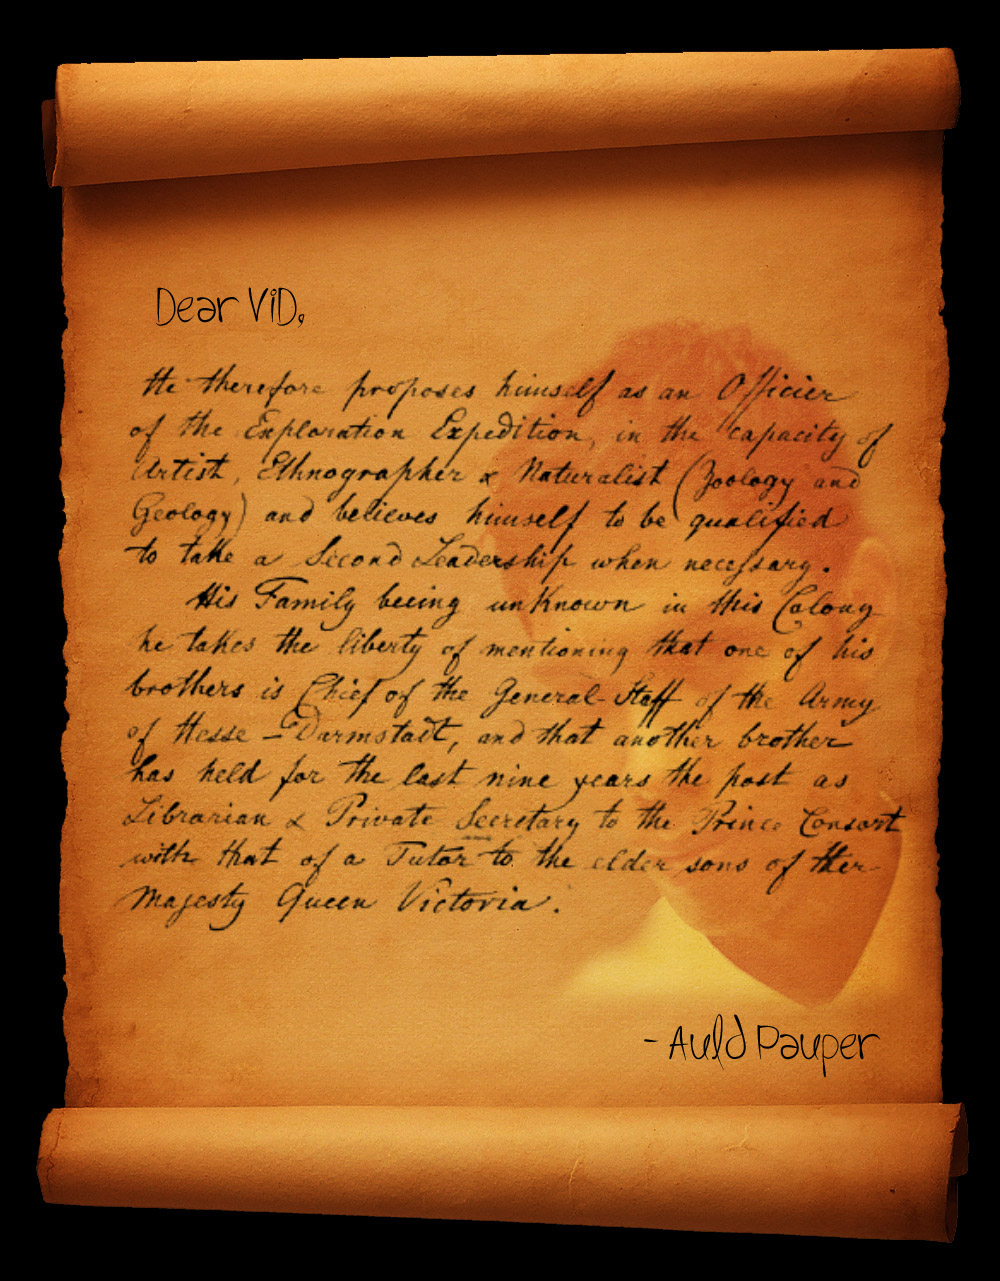 Dear ViD,
He therefore proposes himself as an Officier
of the Exploration Expedition, in the capacity of
Artist, Ethnographer & Naturalist (Zoology and
Geology) and believes himself to be qualified
to take a Second Leadership when necessary.
His Family beeing unKnown in this Colony
he takes the liberty of mentioning that one of his
brothers is Chief of the General-Staff of the Army
of Hesse-Darmstadt, and that another brother
has held for the last nine years the post as
Librarian & Private Secretary to the Prince Consort
with that of a Tutor to the elder sons of Her
Majesty Queen Victoria.
- Auld Pauper